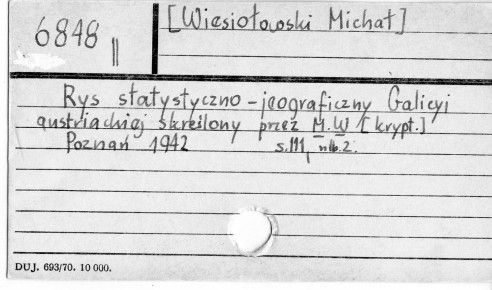 6848 II
[Wiesiołowski Michał]
Rys statystyczno-jeograficzny Galicyi
austriackiej skreślony przez M.W [krypt.]
Poznań 1942 s.111, nlb.2.
DUJ. 693/70. 10 000.